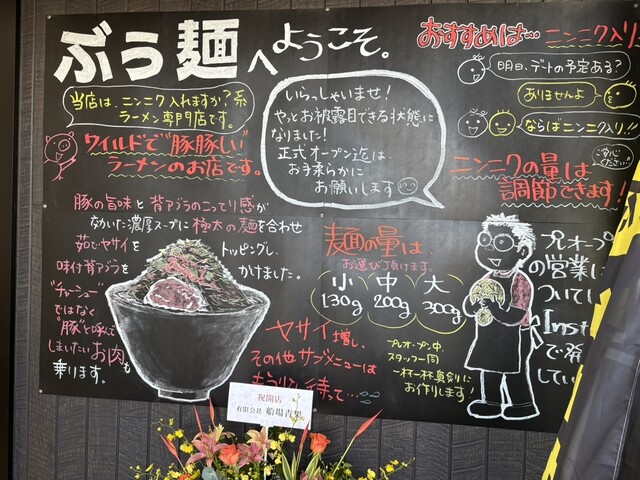 ぶう麺へようこそ。
当店は、ニンニク入れますか？系
ラーメン専門店です。
ワイルドで"豚豚しい"
ラーメンのお店です。
いらっしゃいませ！
やっとお披露目できる状態に
なりました！
正式オープン迄は、
お手柔らかに
お願いします
おすすめは…ニンニク入り
明日、デートの予定ある？
ありませんよ
ならばニンニク入り!!
ご安心
ください
ニンニクの量は
調節できます！
豚の旨味と背アブラのこってり感が
効いた濃厚スープに極太の麺を合わせ
茹でヤサイを
トッピングし、
味付背アブラを
かけました。
"チャーシュー"
ではなく
"豚"と呼んで
しまいたいお肉も
乗ります。
麺の量は、
お選び頂けます
小 中 大
130g 200g 300g
ヤサイ増し、
その他サブメニューは
もう少し待って…
プレオープン中、
スタッフ一同
一杯一杯真剣に
お作りします！
プレオープ
の営業に
ついてい
Inst
で発
してい
祝開店
有限会社 船場青果